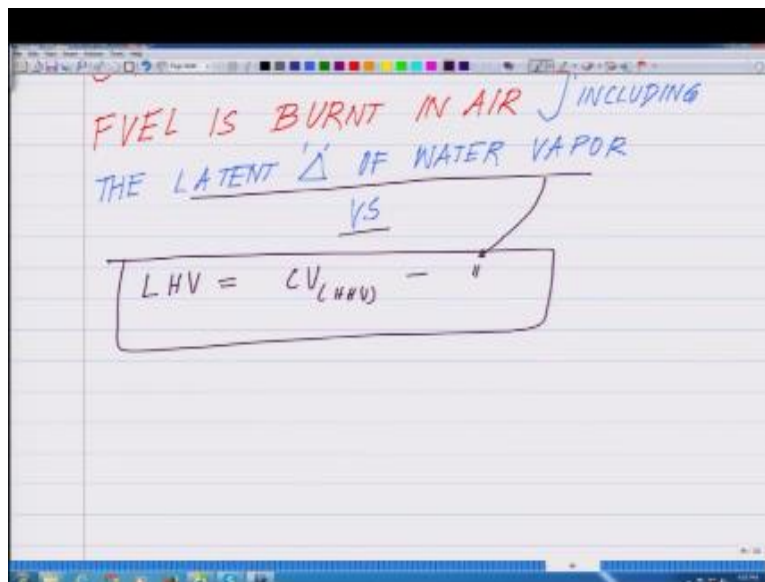 FUEL IS BURNT IN AIR INCLUDING
THE LATENT 'Δ' OF WATER VAPOR
VS
LHV = CV(HHV) - "